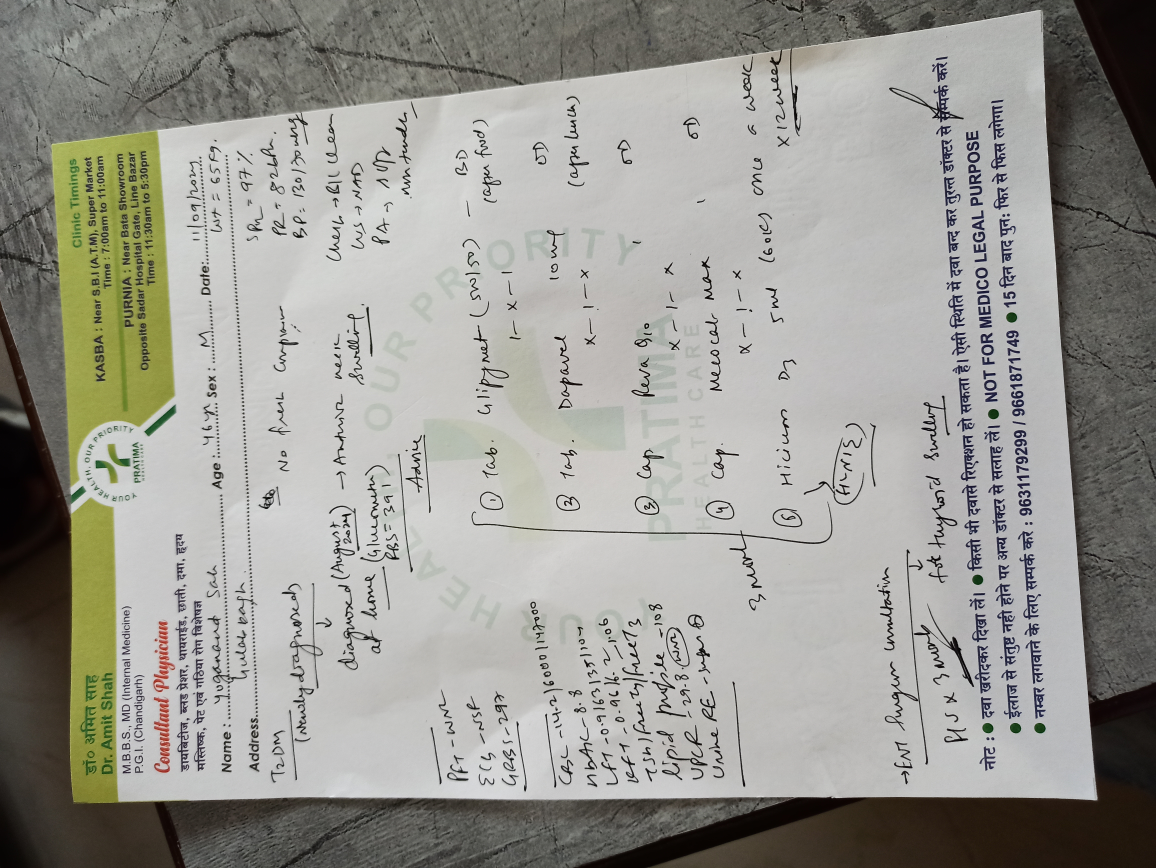 डॉ० अमित साह
Dr. Amit Shah
M.B.B.S., MD (Internal Medicine)
P.G.I. (Chandigarh)
Consultant Physician
डायबिटीज, ब्लड प्रेशर, थायराईड, छाती, दमा, हृदय
मस्तिष्क, पेट एवं गठिया रोग विशेषज्ञ
YOUR HEALTH, OUR PRIORITY
PRATIMA
HEALTH CARE
Clinic Timings
KASBA : Near S.B.I (A.T.M), Super Market
Time : 7:00am to 11:00am
PURNIA : Near Bata Showroom
Opposite Sadar Hospital Gate, Line Bazar
Time : 11:30am to 5:30pm
Name : Yoganand Sah Age : 46yr Sex : M Date: 11/09/2024
Address Gulab bagh
Wt = 65kg.
T2DM
(Newly diagnosed)
No fresh
diagnosed (August 2024)
at home (Glucometer)
RBS = 391
→ Anterior neck
Swelling.
97%
PR = 82
BP = 130/
Chest → B/L Clear
CVS → NAD
PA →
non tender
PFT - WNL
ECG - NSR
GRBS - 297
CBC - 14.2/6000/147000
HbA1C - 8.8
LFT
KFT - 0.96
TSH/freeT4/freeT3
lipid profile - 108
UPCR - 29.8
Urine RE - sugar
Advice
① Tab. Glipynet (50/50) - BD
1 - x - 1 (after food)
② Tab. Dapavel 10mg OD
x - 1 - x (after lunch)
③ Cap OD
x - 1 - x
④ Cap. Mecocal max OD
x - 1 - x
⑤ D3 5ml (60K) once a week
x 12 week
3 month
→ ENT Surgeon consultation
↓
for thyroid Swelling
x 3 month
नोट : ● दवा खरीदकर दिखा लें। ● किसी भी दवासे रिएक्शन हो सकता है। ऐसी स्थिति में दवा बन्द कर तुरन्त डॉक्टर से सम्पर्क करें।
● ईलाज से संतुष्ट नही होने पर अन्य डॉक्टर से सलाह लें। ● NOT FOR MEDICO LEGAL PURPOSE
● नम्बर लगवाने के लिए सम्पर्क करे : 9631179299 / 9661871749 ● 15 दिन बाद पुनः फिर से फिस लगेगा।